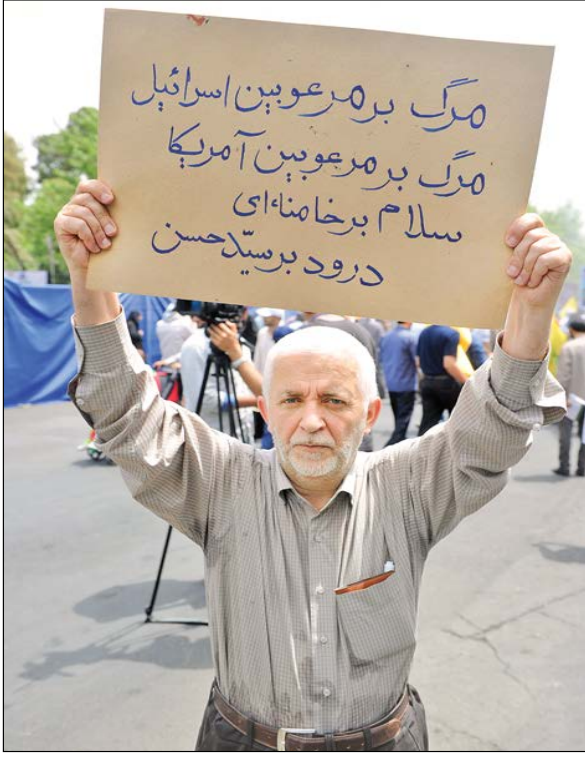 مرگ بر مرعوبین اسرائیل
مرگ بر مرعوبین آمریکا
سلام بر خامناءای
درود بر سیّد حسن